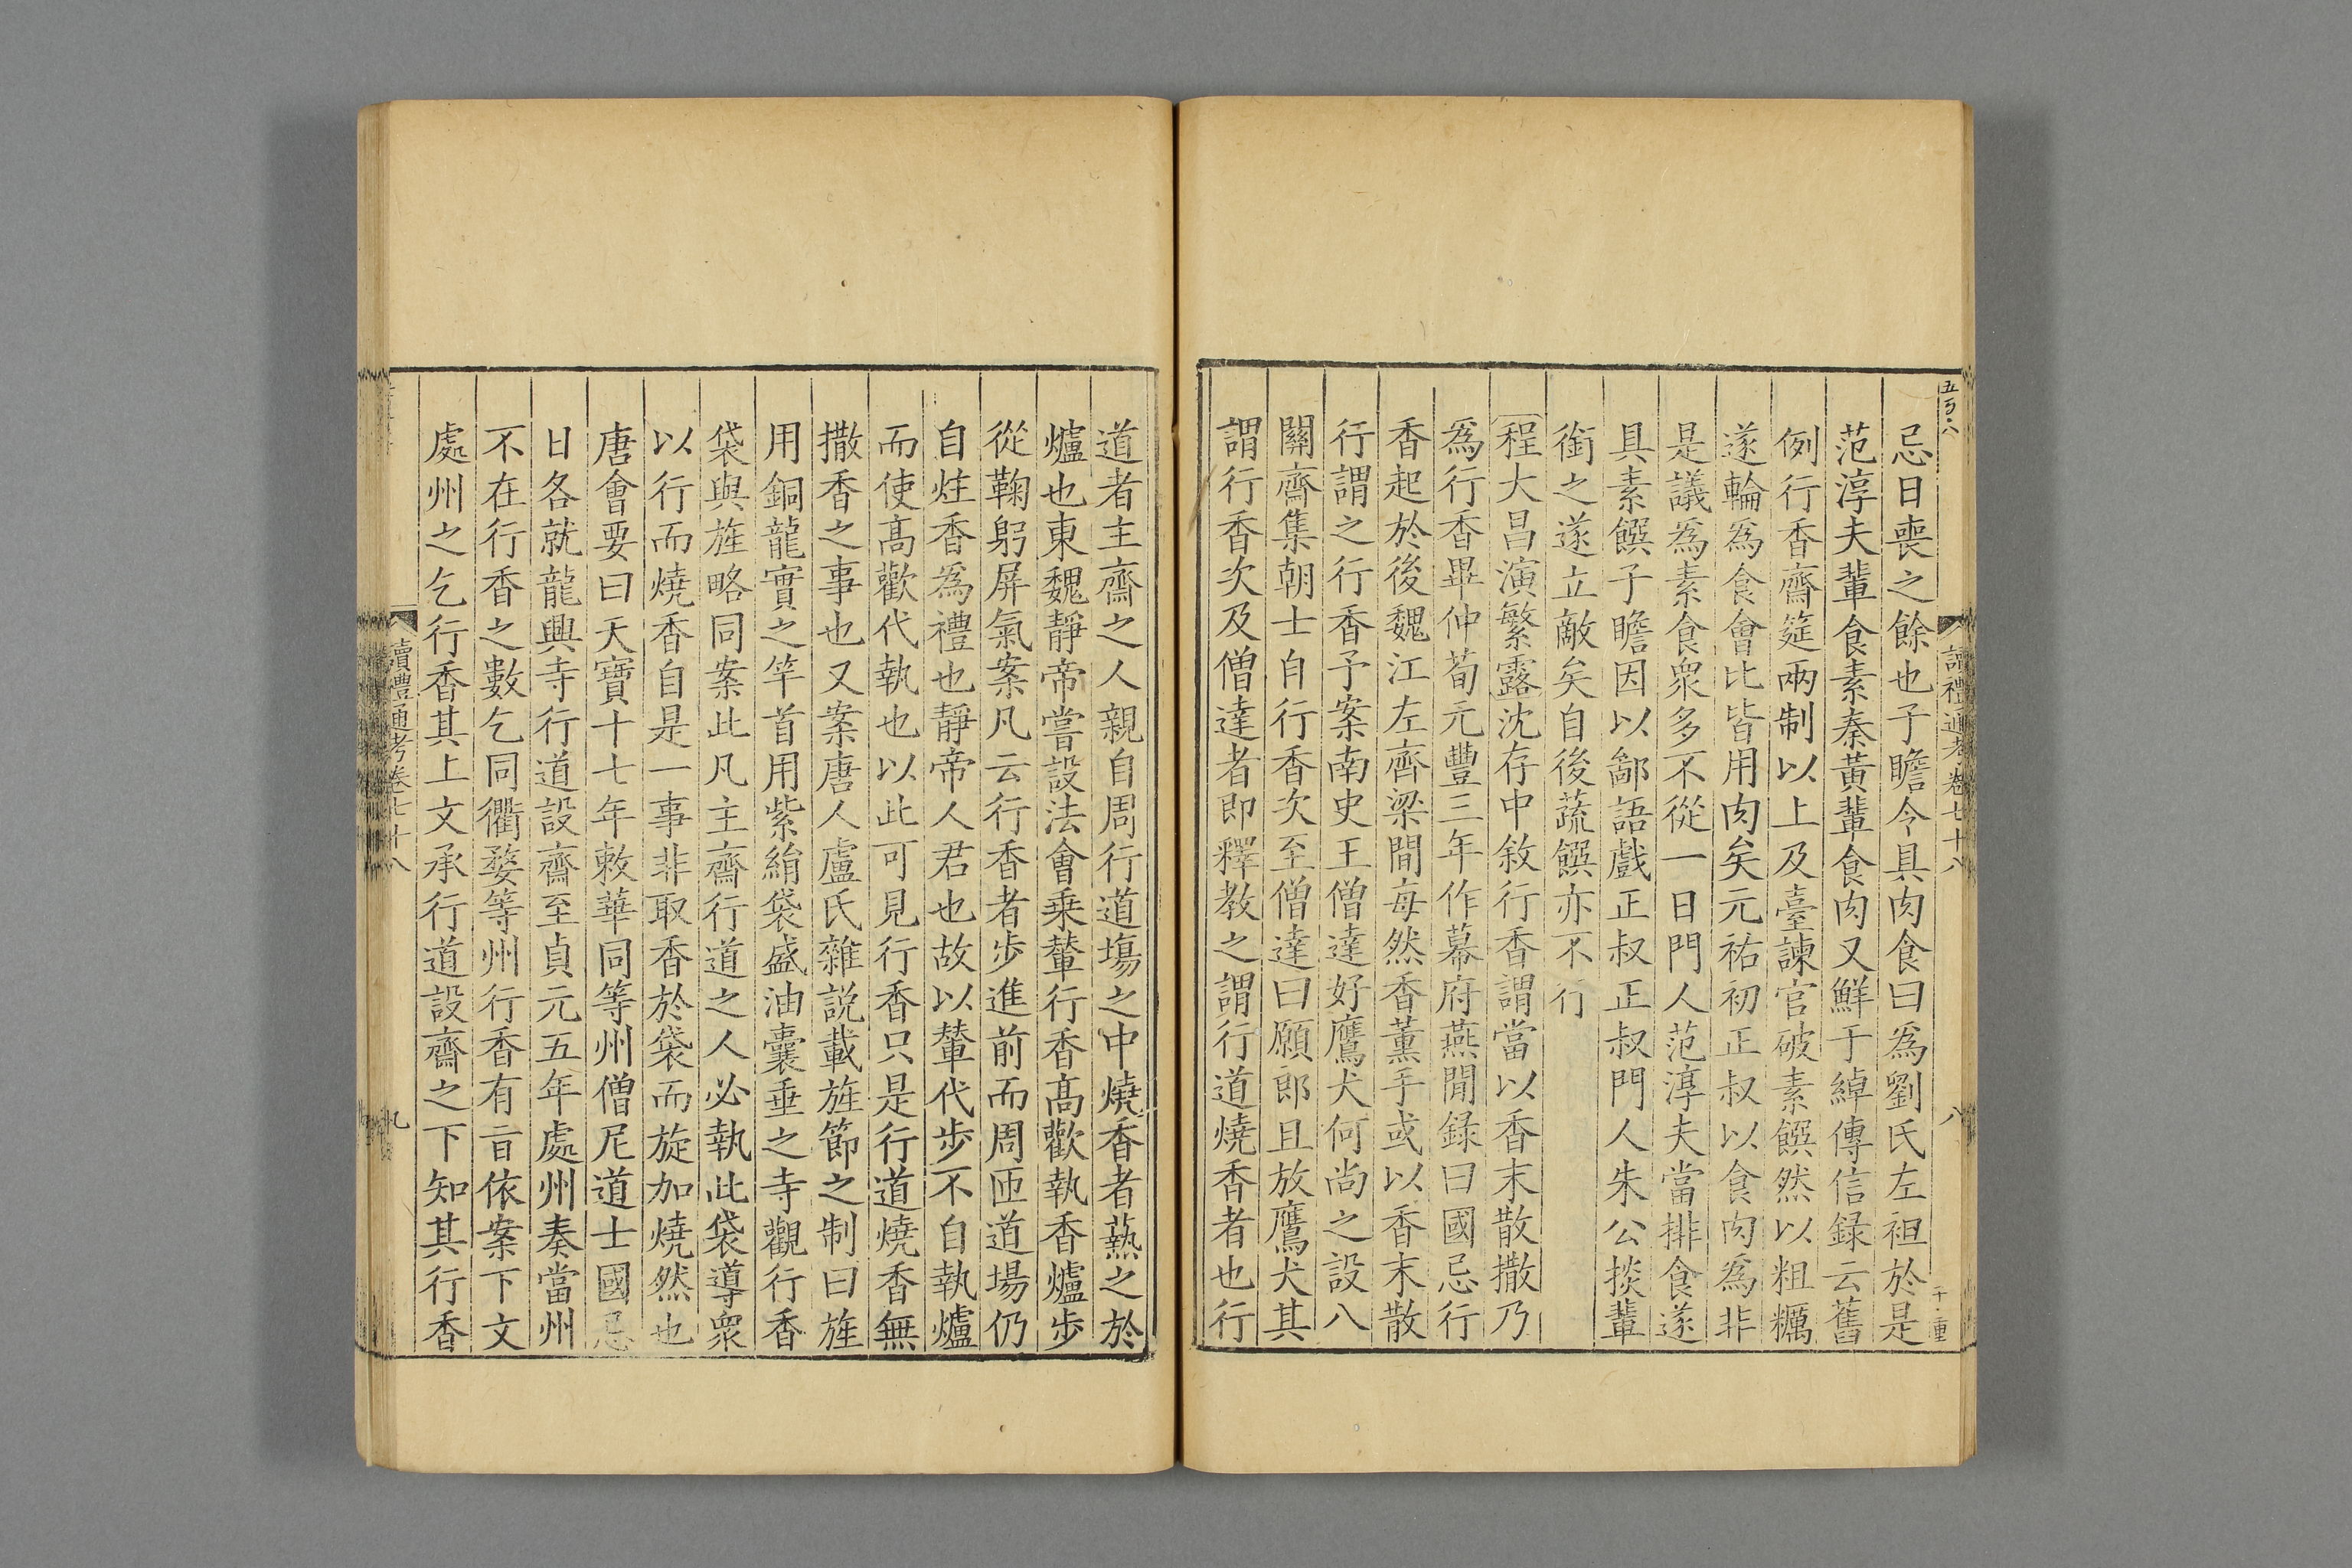 五百八
讀禮通考卷七十八
八
忌日喪之餘也子瞻令具肉食曰爲劉氏左袒於是
范淳夫輩食素秦黃輩食肉又鮮于綽傳信録云舊
例行香齋筵兩制以上及臺諫官破素饌然以粗糲
遂輪爲食會比皆用肉矣元祐初正叔以食肉爲非
是議爲素食衆多不從一日門人范淳夫當排食遂
具素饌子瞻因以鄙語戲正叔正叔門人朱公掞輩
銜之遂立敵矣自後蔬饌亦不行
程大昌演繁露沈存中敘行香謂當以香末散撒乃
爲行香畢仲荀元豐三年作幕府燕閒録曰國忌行
香起於後魏江左齊梁間每然香薰手或以香末散
行謂之行香予案南史王僧達好鷹犬何尚之設八
關齋集朝士自行香次至僧達曰願郎且放鷹犬其
謂行香次及僧達者即釋教之謂行道燒香者也行
道者主齋之人親自周行道場之中燒香者爇之於
爐也東魏靜帝嘗設法會乗輦行香髙歡執香爐步
從鞠躬屏氣案凡云行香者步進前而周匝道場仍
自炷香爲禮也靜帝人君也故以輦代步不自執爐
而使髙歡代執也以此可見行香只是行道燒香無
撒香之事也又案唐人盧氏雜説載旌節之制曰旌
用銅龍實之竿首用紫絹袋盛油囊垂之寺觀行香
袋與旌略同案此凡主齋行道之人必執此袋導衆
以行而燒香自是一事非取香於袋而旋加燒然也
唐會要曰天寶十七年敕華同等州僧尼道士國忌
日各就龍興寺行道設齋至貞元五年處州奏當州
不在行香之數乞同衢婺等州行香有旨依案下文
處州之乞行香其上文承行道設齋之下知其行香
讀禮通考卷七十八
九